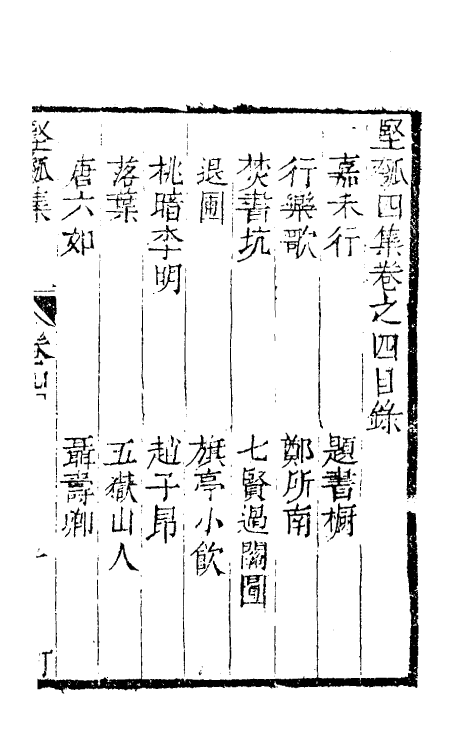 堅瓠四集卷之四目錄
嘉禾行　題書櫥
行樂歌　鄭所南
焚書坑　七賢過關圖
退圃　旗亭小飲
桃暗李明　趙子昂
落葉　五嶽山人
唐六如　聶壽卿
堅瓠集　卷四